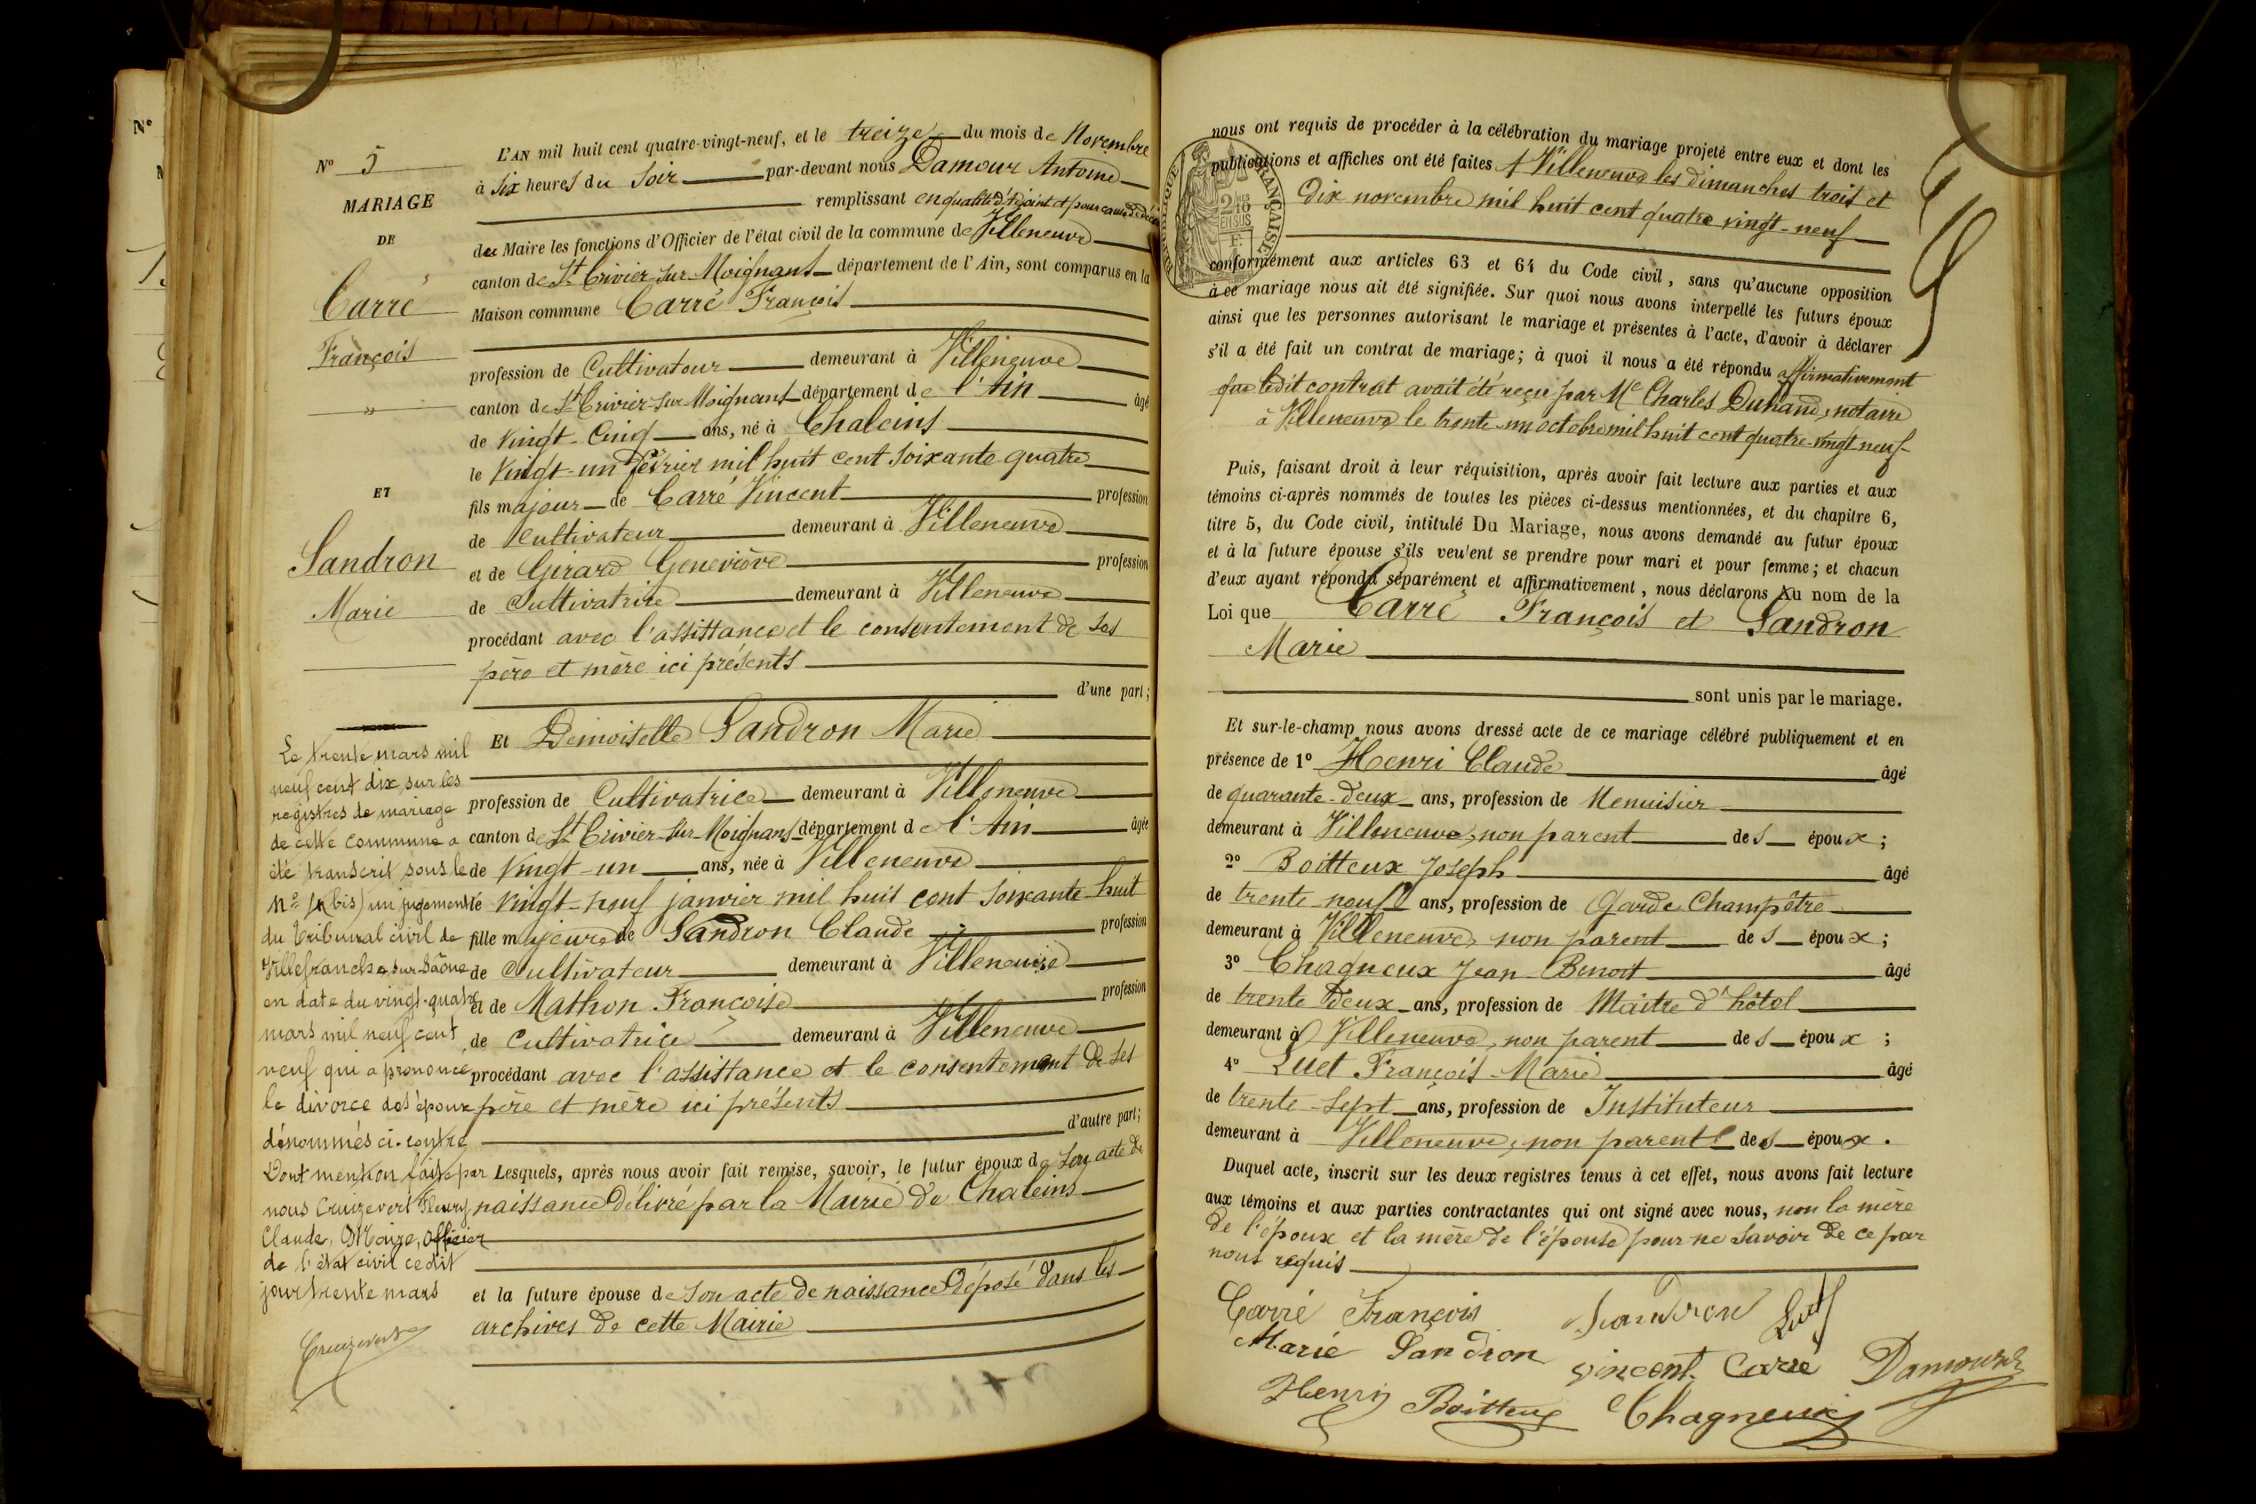 N° 5
MARIAGE
DE
Carré
François
"
ET
Sandron
Marie
Le trente mars mil
neuf cent dix, sur les
registres de mariage
de cette commune a
été transcrit sous le
N° (bis) un jugement
du tribunal civil de
Villefranche-sur-Saône
en date du vingt-quatre
mars mil neuf cent
neuf qui a prononcé
le divorce des époux
dénommés ci-contre
Dont mention faite par
nous Cruizevert Fleury
Claude, Maire, officier
de l'état civil cedit
jour trente mars
Cruizevert
L'AN mil huit cent quatre-vingt-neuf, et le treize du mois de Novembre
à six heures du soir par-devant nous Damour Antoine
remplissant en qualité d'adjoint et pour cause de décès
du Maire les fonctions d'Officier de l'état civil de la commune de Villeneuve
canton de St Trivier-sur-Moignans département de l'Ain, sont comparus en la
Maison commune Carré François
profession de Cultivateur demeurant à Villeneuve
canton de St Trivier-sur-Moignans département de l'Ain âgé
de vingt-cinq ans, né à Chaleins
le vingt-un février mil huit cent soixante-quatre
fils majeur de Carré Vincent profession
de cultivateur demeurant à Villeneuve
et de Girard Geneviève profession
de Cultivatrice demeurant à Villeneuve
procédant avec l'assistance et le consentement de ses
père et mère ici présents
d'une part;
Et Demoiselle Sandron Marie
profession de Cultivatrice demeurant à Villeneuve
canton de St Trivier-sur-Moignans département de l'Ain âgée
de vingt-un ans, née à Villeneuve
le vingt-neuf janvier mil huit cent soixante-huit
fille majeure de Sandron Claude profession
de Cultivateur demeurant à Villeneuve
et de Mathon Françoise profession
de Cultivatrice demeurant à Villeneuve
procédant avec l'assistance et le consentement de ses
père et mère ici présents
d'autre part;
Lesquels, après nous avoir fait remise, savoir, le futur époux de son acte de
naissance délivré par la Mairie de Chaleins
et la future épouse de son acte de naissance déposé dans les
archives de cette Mairie
nous ont requis de procéder à la célébration du mariage projeté entre eux et dont les
publications et affiches ont été faites à Villeneuve les dimanches trois et
dix novembre mil huit cent quatre vingt-neuf
conformément aux articles 63 et 64 du Code civil, sans qu'aucune opposition
à ce mariage nous ait été signifiée. Sur quoi nous avons interpellé les futurs époux
ainsi que les personnes autorisant le mariage et présentes à l'acte, d'avoir à déclarer
s'il a été fait un contrat de mariage; à quoi il nous a été répondu affirmativement
que ledit contrat avait été reçu par Me Charles Duhand, notaire
à Villeneuve le trente-un octobre mil huit cent quatre-vingt-neuf
Puis, faisant droit à leur réquisition, après avoir fait lecture aux parties et aux
témoins ci-après nommés de toutes les pièces ci-dessus mentionnées, et du chapitre 6,
titre 5, du Code civil, intitulé Du Mariage, nous avons demandé au futur époux
et à la future épouse s'ils veulent se prendre pour mari et pour femme; et chacun
d'eux ayant répondu séparément et affirmativement, nous déclarons au nom de la
Loi que Carré François et Sandron
Marie
sont unis par le mariage.
Et sur-le-champ nous avons dressé acte de ce mariage célébré publiquement et en
présence de 1° Henri Claude âgé
de quarante-deux ans, profession de Menuisier
demeurant à Villeneuve, non parent des époux;
2° Boitteux Joseph âgé
de trente-neuf ans, profession de Garde Champêtre
demeurant à Villeneuve, non parent des époux;
3° Chagneux Jean-Benoit âgé
de trente deux ans, profession de Maître d'hôtel
demeurant à Villeneuve, non parent des époux;
4° Luet François-Marie âgé
de trente-sept ans, profession de Instituteur
demeurant à Villeneuve, non parent des époux.
Duquel acte, inscrit sur les deux registres tenus à cet effet, nous avons fait lecture
aux témoins et aux parties contractantes qui ont signé avec nous, non la mère
de l'époux et la mère de l'épouse pour ne savoir de ce par
nous requis
Carré François Sandron Luet
Marie Sandron vincent Carré Damour
Henri Boitteux Chagneux